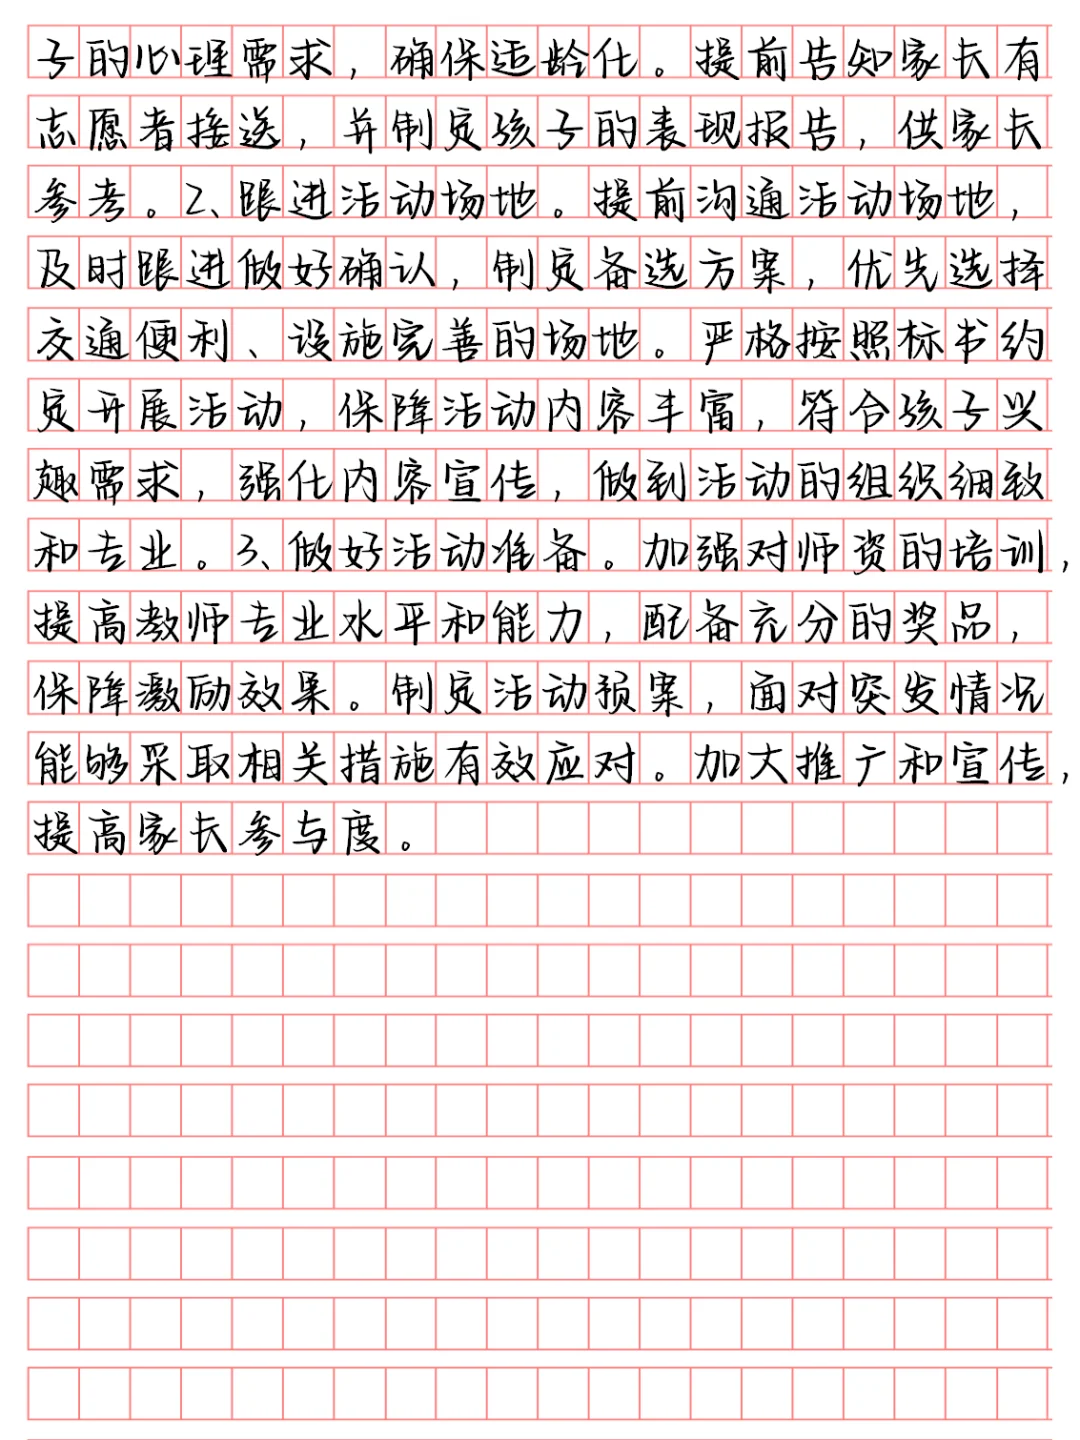 子的心理需求，确保适龄化。提前告知家长有
志愿者接送，并制定孩子的表现报告，供家长
参考。2、跟进活动场地。提前沟通活动场地，
及时跟进做好确认，制定备选方案，优先选择
交通便利、设施完善的场地。严格按照标书约
定开展活动，保障活动内容丰富，符合孩子兴
趣需求，强化内容宣传，做到活动的组织细致
和专业。3、做好活动准备。加强对师资的培训，
提高教师专业水平和能力，配备充分的奖品，
保障激励效果。制定活动预案，面对突发情况
能够采取相关措施有效应对。加大推广和宣传，
提高家长参与度。